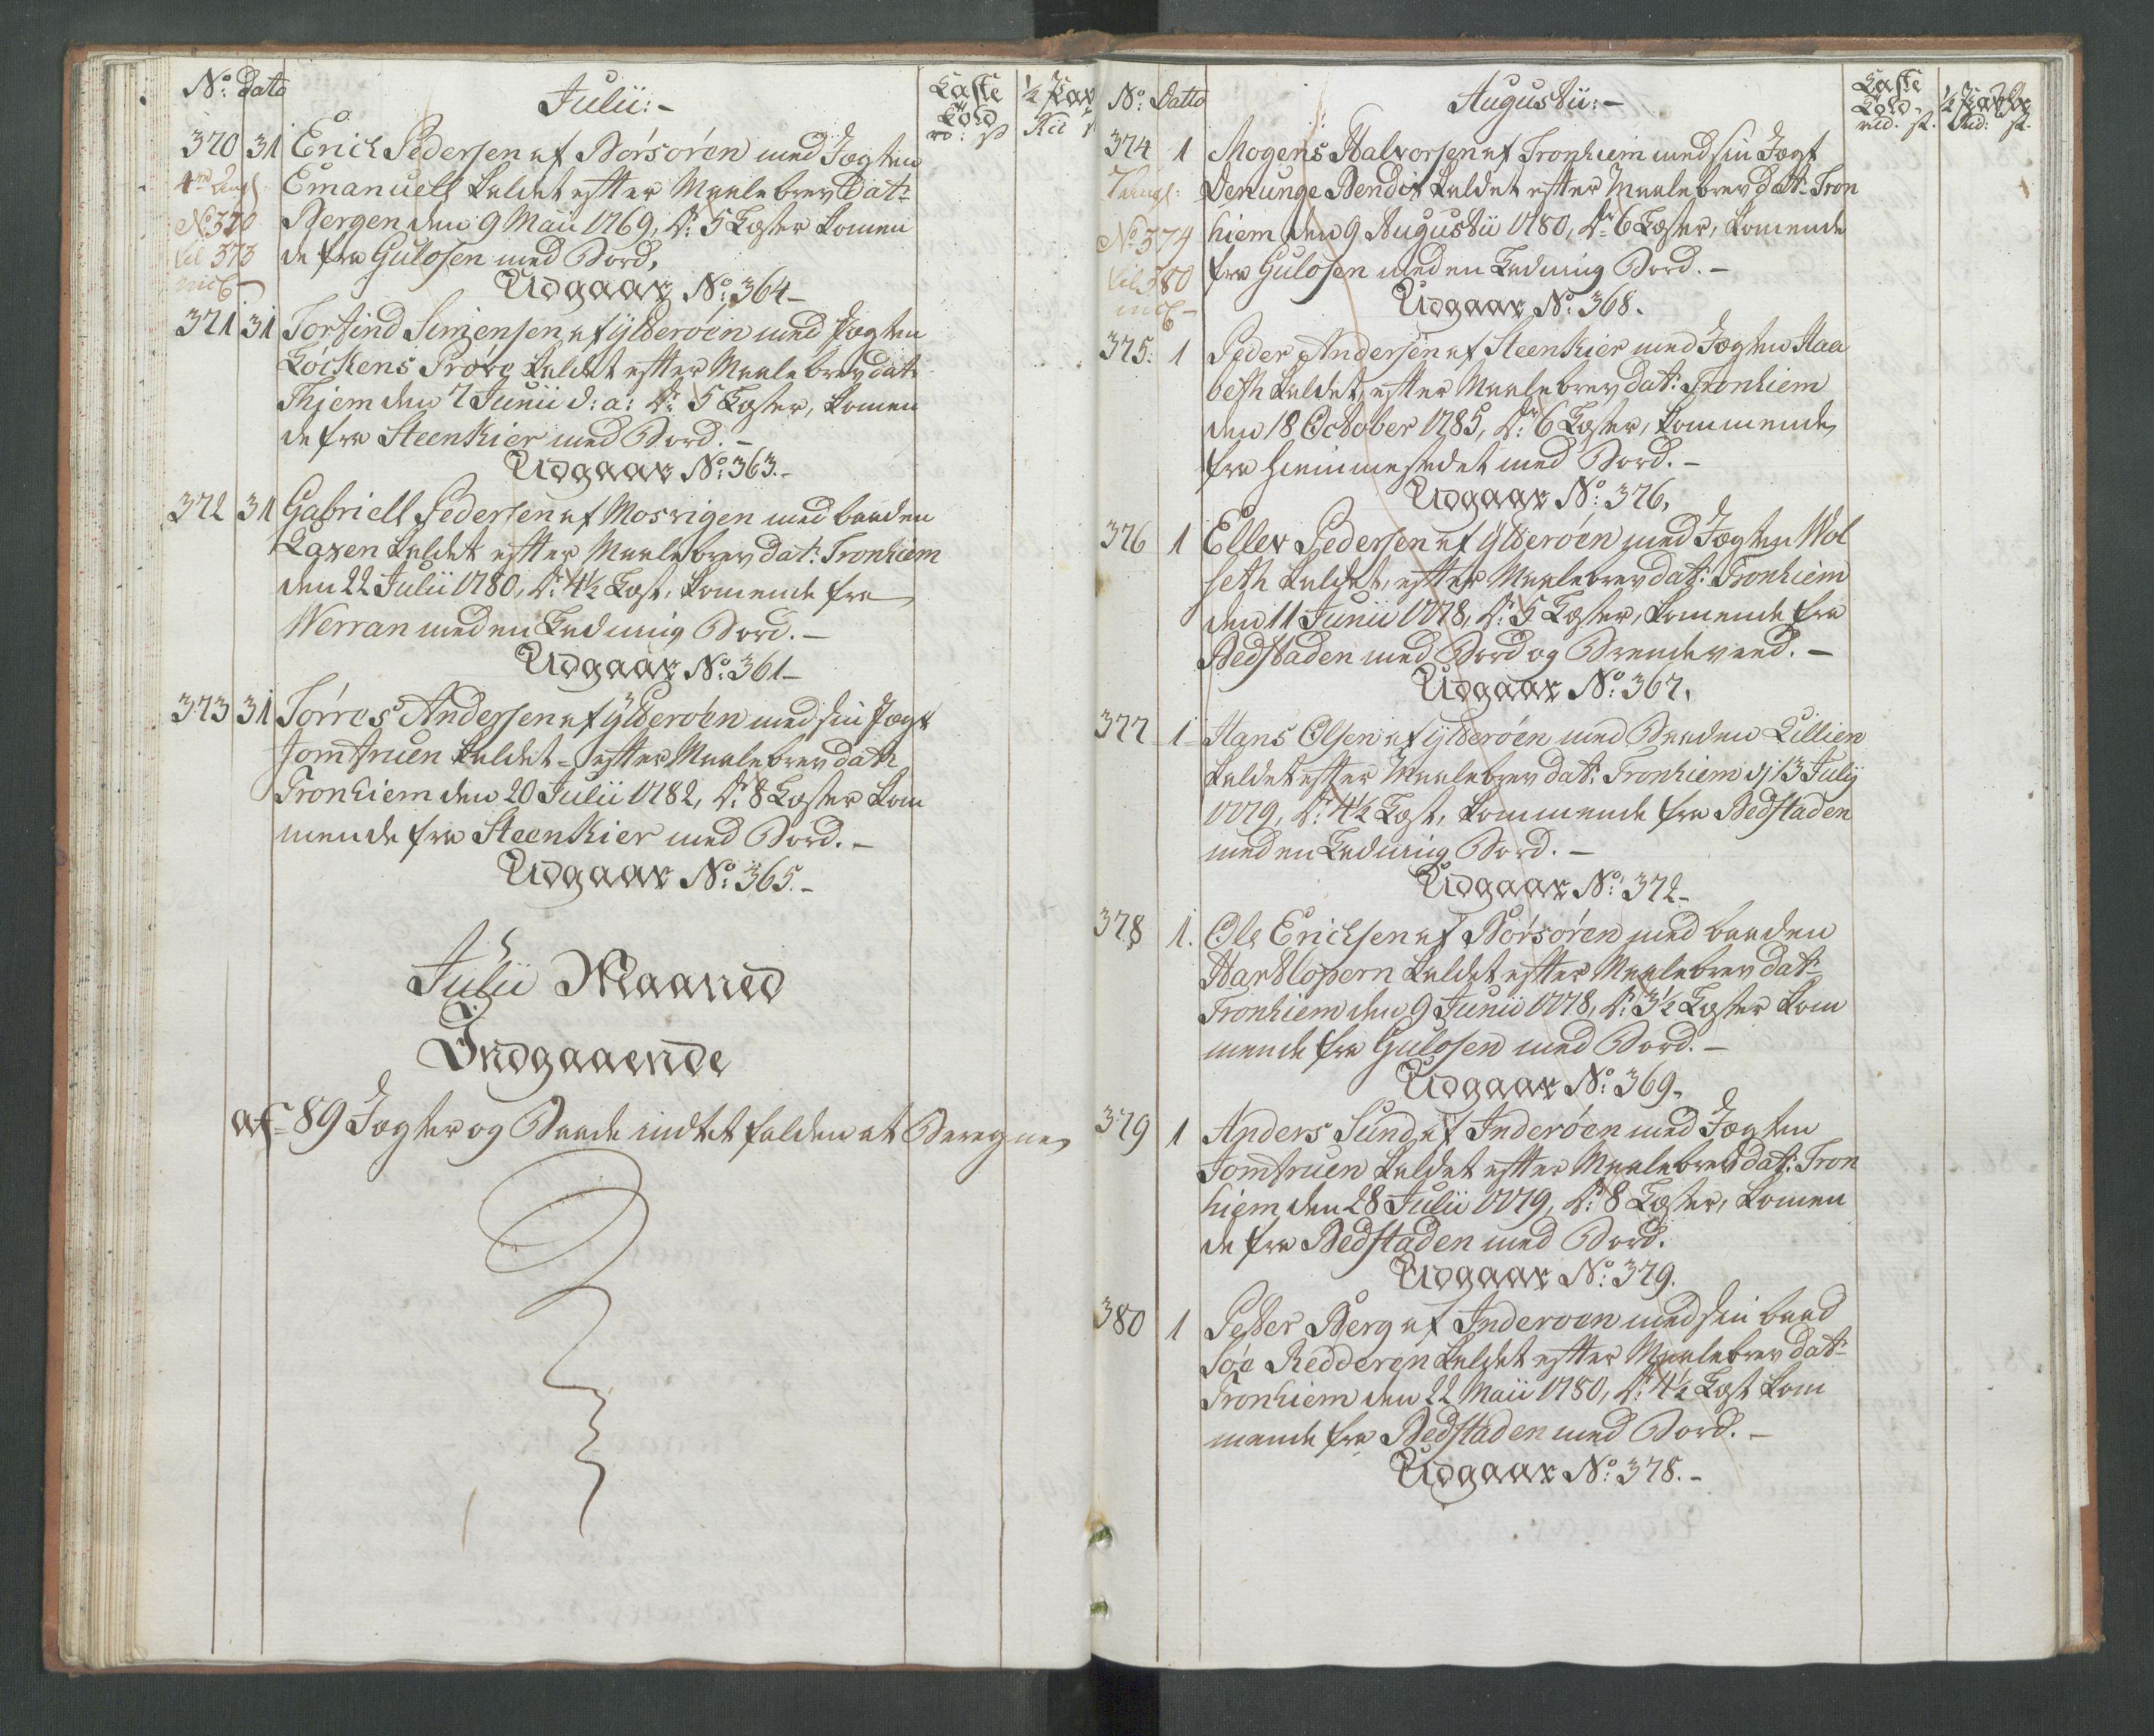 No: Dato
Julii:-
Læste
Told
rd: s
½ Skat
370 31 Erich Pedersen af Børsøren med Jægten
Emanuell kaldet efter Maalebrev Dat:
Bergen den 9 Maii 1769, Dr: 5 Læster komen
de fra Gulosen med Bord,
Udgaar No: 364-
No 370
til 373
incl
371 31 Torfind Simensen af Ylderøen med Jægten
Lóckens Prøve kaldet efter Maalebrev dat:
Thiem den 7 Junii d: a: Dr: 5 Læster, komen
de fra Steenkier med Bord.-
Udgaar No: 363.-
372 31 Gabriell Pedersen af Mosvigen med baaden
Laxen kaldet efter Maalebrev dat: Tronhiem
den 22 Julii 1780, Dr: 4½ Læst, komende fra
Werran med en Ladning Bord.-
Udgaar No: 361-
373 31 Tørres Andersen af Ylderøen med sin Jægt
Jomfruen kaldet - efter Maalebrev dat:
Tronhiem den 20 Julii 1782, Dr: 8 Læster kom
mende fra Steenkier med Bord.-
Udgaar No: 365.-
Julii Maaned
Indgaaende
af 89 Jægter og Baade indtet falden at Beregne,
No: Datto
Augustii:-
Læste
Told
rd. s.
½ Skatt
Rd: s.
374 1 Mogens Halvorsen af Tronhiem med sin Jægt
Den unge Bendix kaldet efter Maalebrev dat: Tron
hiem den 9 Augustii 1780, Dr: 6 Læster, komende
fra Gulosen med en Ladning Bord.-
Udgaar No: 368.
No 374
til 380
incl-
375: 1 Peder Andersen af Steenkier med Jægten Haa
beth kaldet, efter Maalebrev dat: Tronhiem
den 18 October 1785, Dr: 6 Læster, kommende
fra Hiemmestedet med Bord.-
Udgaar No: 376,
376 1 Eller Pedersen af Ylderøen med Jægten Wol
seth kaldet, efter Maalebrev dat: Tronhiem
den 11 Junii 1778, Dr: 5 Læster, komende fra
Bedstaden med Bord og Brendeveed.-
Udgaar No: 367.
377 1 Hans Olsen af Ylderøen med Baaden Lillien
kaldet efter Maalebrev dat: Tronhiem d: 13 Julij
1779, Dr: 4½ Læst, kommende fra Bedstaden
med en Ladning Bord.-
Udgaar No: 372-
378 1. Ole Erichsen af Børsøren med baaden
Hartlopern kaldet efter Maalebrev dat:
Tronhiem den 9 Junii 1778, Dr: 3½ Læster kom
mende fra Gulosen med Bord.-
Udgaar No: 369.
379 1 Anders Sund af Inderøen med Jægten
Jomfruen kaldet efter Maalebrev dat: Tron
hiem den 28 Julii 1779, Dr: 8 Læster, komen
de fra Bedstaden med Bord.
Udgaar No: 379.
380 1 Petter Berg af Inderoen med sin baad
Søe Redderen kaldet efter Maalebrev dat:
Tronhiem den 22 Maii 1780, Dr: 4½ Læst kom
mende fra Bedstaden med Bord.-
Udgaar No: 378.-